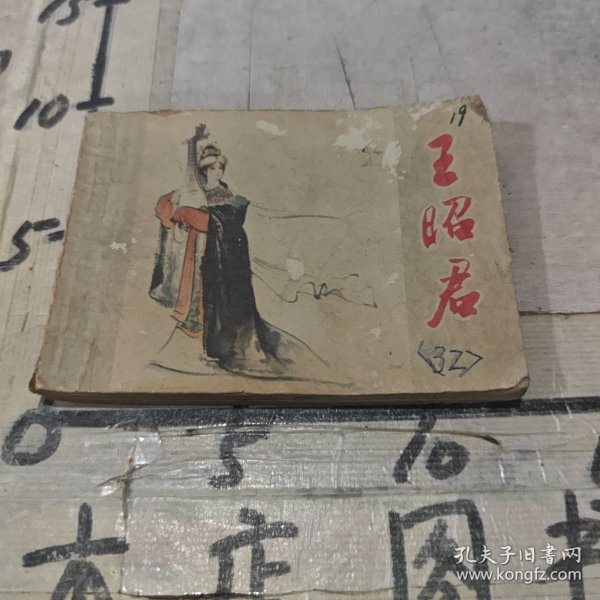 15
10
5
19
王昭君
<32>
0 5 10
孔夫子旧书网
www.kongfz.com